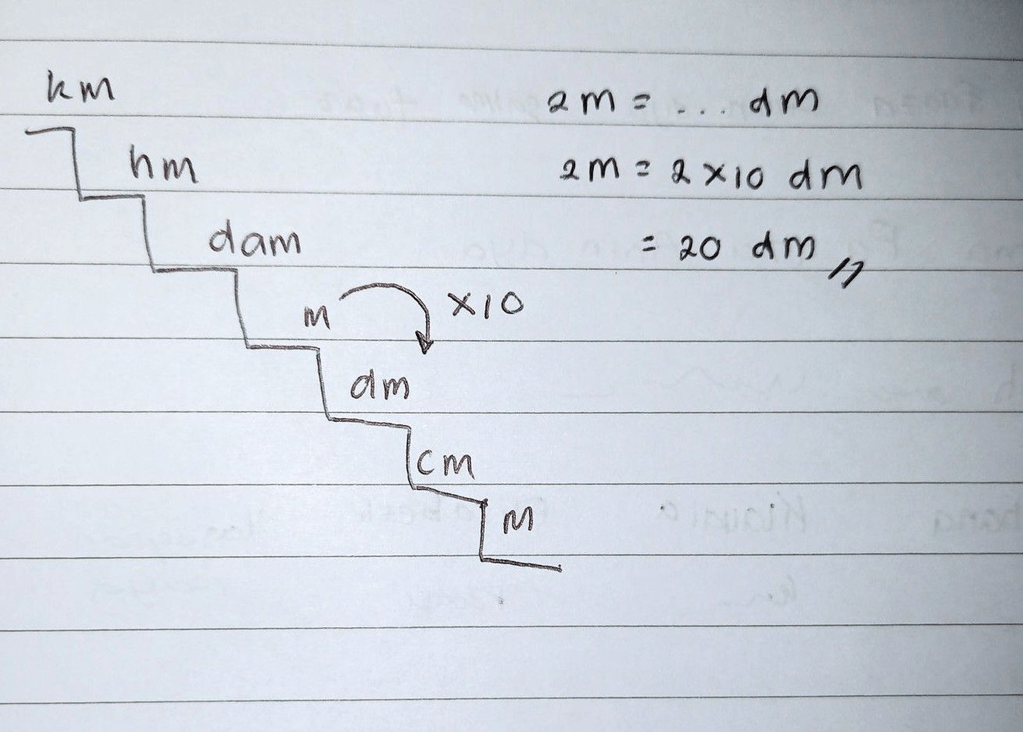 km
2m = ... dm
hm
2m = 2 x 10 dm
dam
= 20 dm //
m x10
dm
cm
m